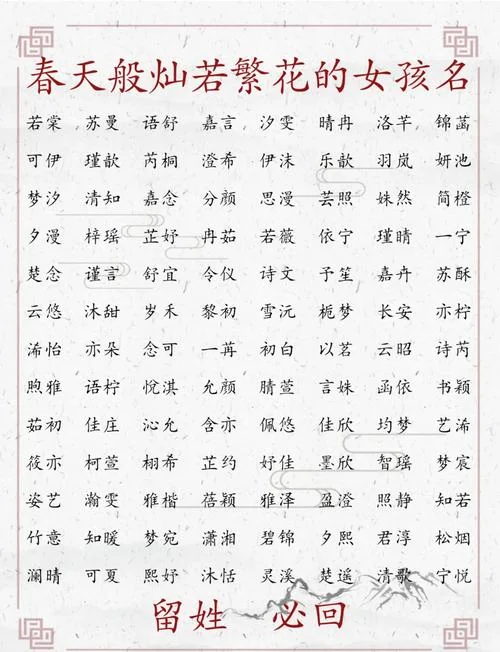 春天般灿若繁花的女孩名
若棠 苏曼 语舒 嘉言 汐雯 晴冉 洛芊 锦菡
可伊 瑾歆 芮桐 澄希 伊沫 乐歆 羽岚 妍池
梦汐 清知 嘉念 分颜 思漫 芸照 姝然 简橙
夕漫 梓瑶 芷妤 冉茹 若薇 依宁 瑾晴 一宁
楚念 谨言 舒宜 令仪 诗文 予笙 嘉卉 苏酥
云悠 沐甜 岁禾 黎初 雪沅 栀梦 长安 亦柠
浠怡 亦朵 念可 一苒 初白 以茗 云昭 诗芮
煦雅 语柠 悅淇 允颜 腈萱 言姝 函依 书颖
茹初 佳庄 沁允 含亦 佩悠 佳欣 均梦 艺浠
筱亦 柯萱 栩希 芷约 妤佳 墨欣 智瑶 梦宸
姿艺 瀚雯 雅楷 蓓颖 雅泽 盈澄 照静 知若
竹意 知暖 梦宛 潇湘 碧锦 夕熙 君淳 松烟
澜晴 可夏 熙妤 沐恬 灵溪 楚遥 清歌 宁悦
留姓 必回